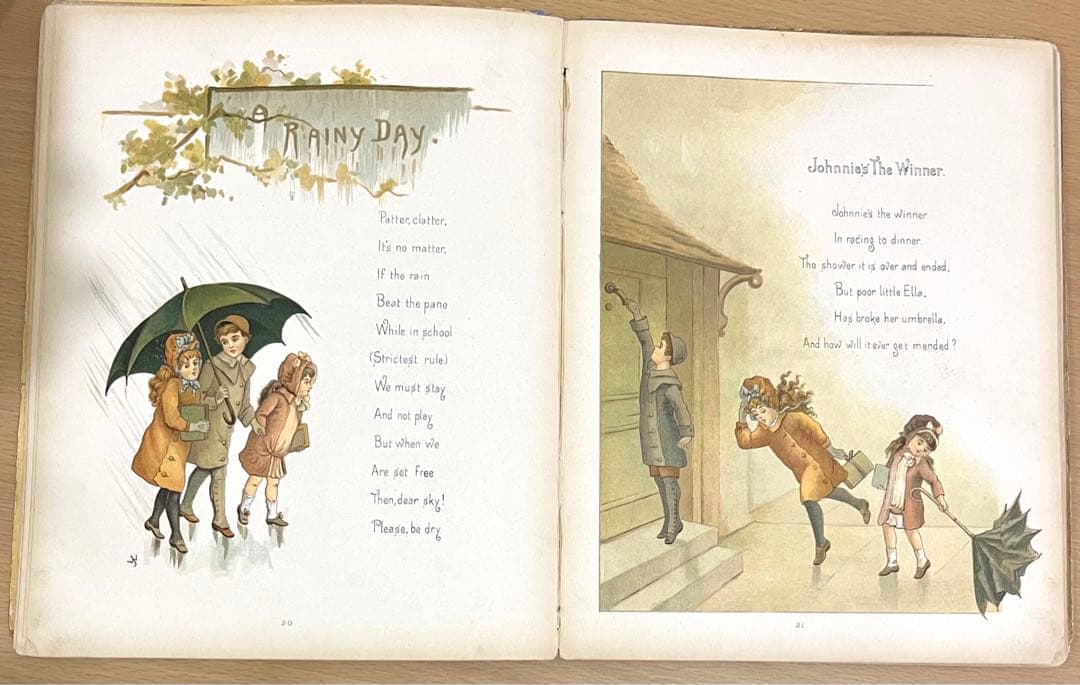 A RAINY DAY.
Patter, clatter,
It's no matter,
If the rain
Beat the pane
While in school
(Strictest rule)
We must stay
And not play
But when we
Are set free
Then, dear sky!
Please, be dry
20
Johnnie's The Winner.
Johnnie's the winner
In racing to dinner.
The shower it is over and ended,
But poor little Ella,
Has broke her umbrella,
And how will it ever get mended?
21